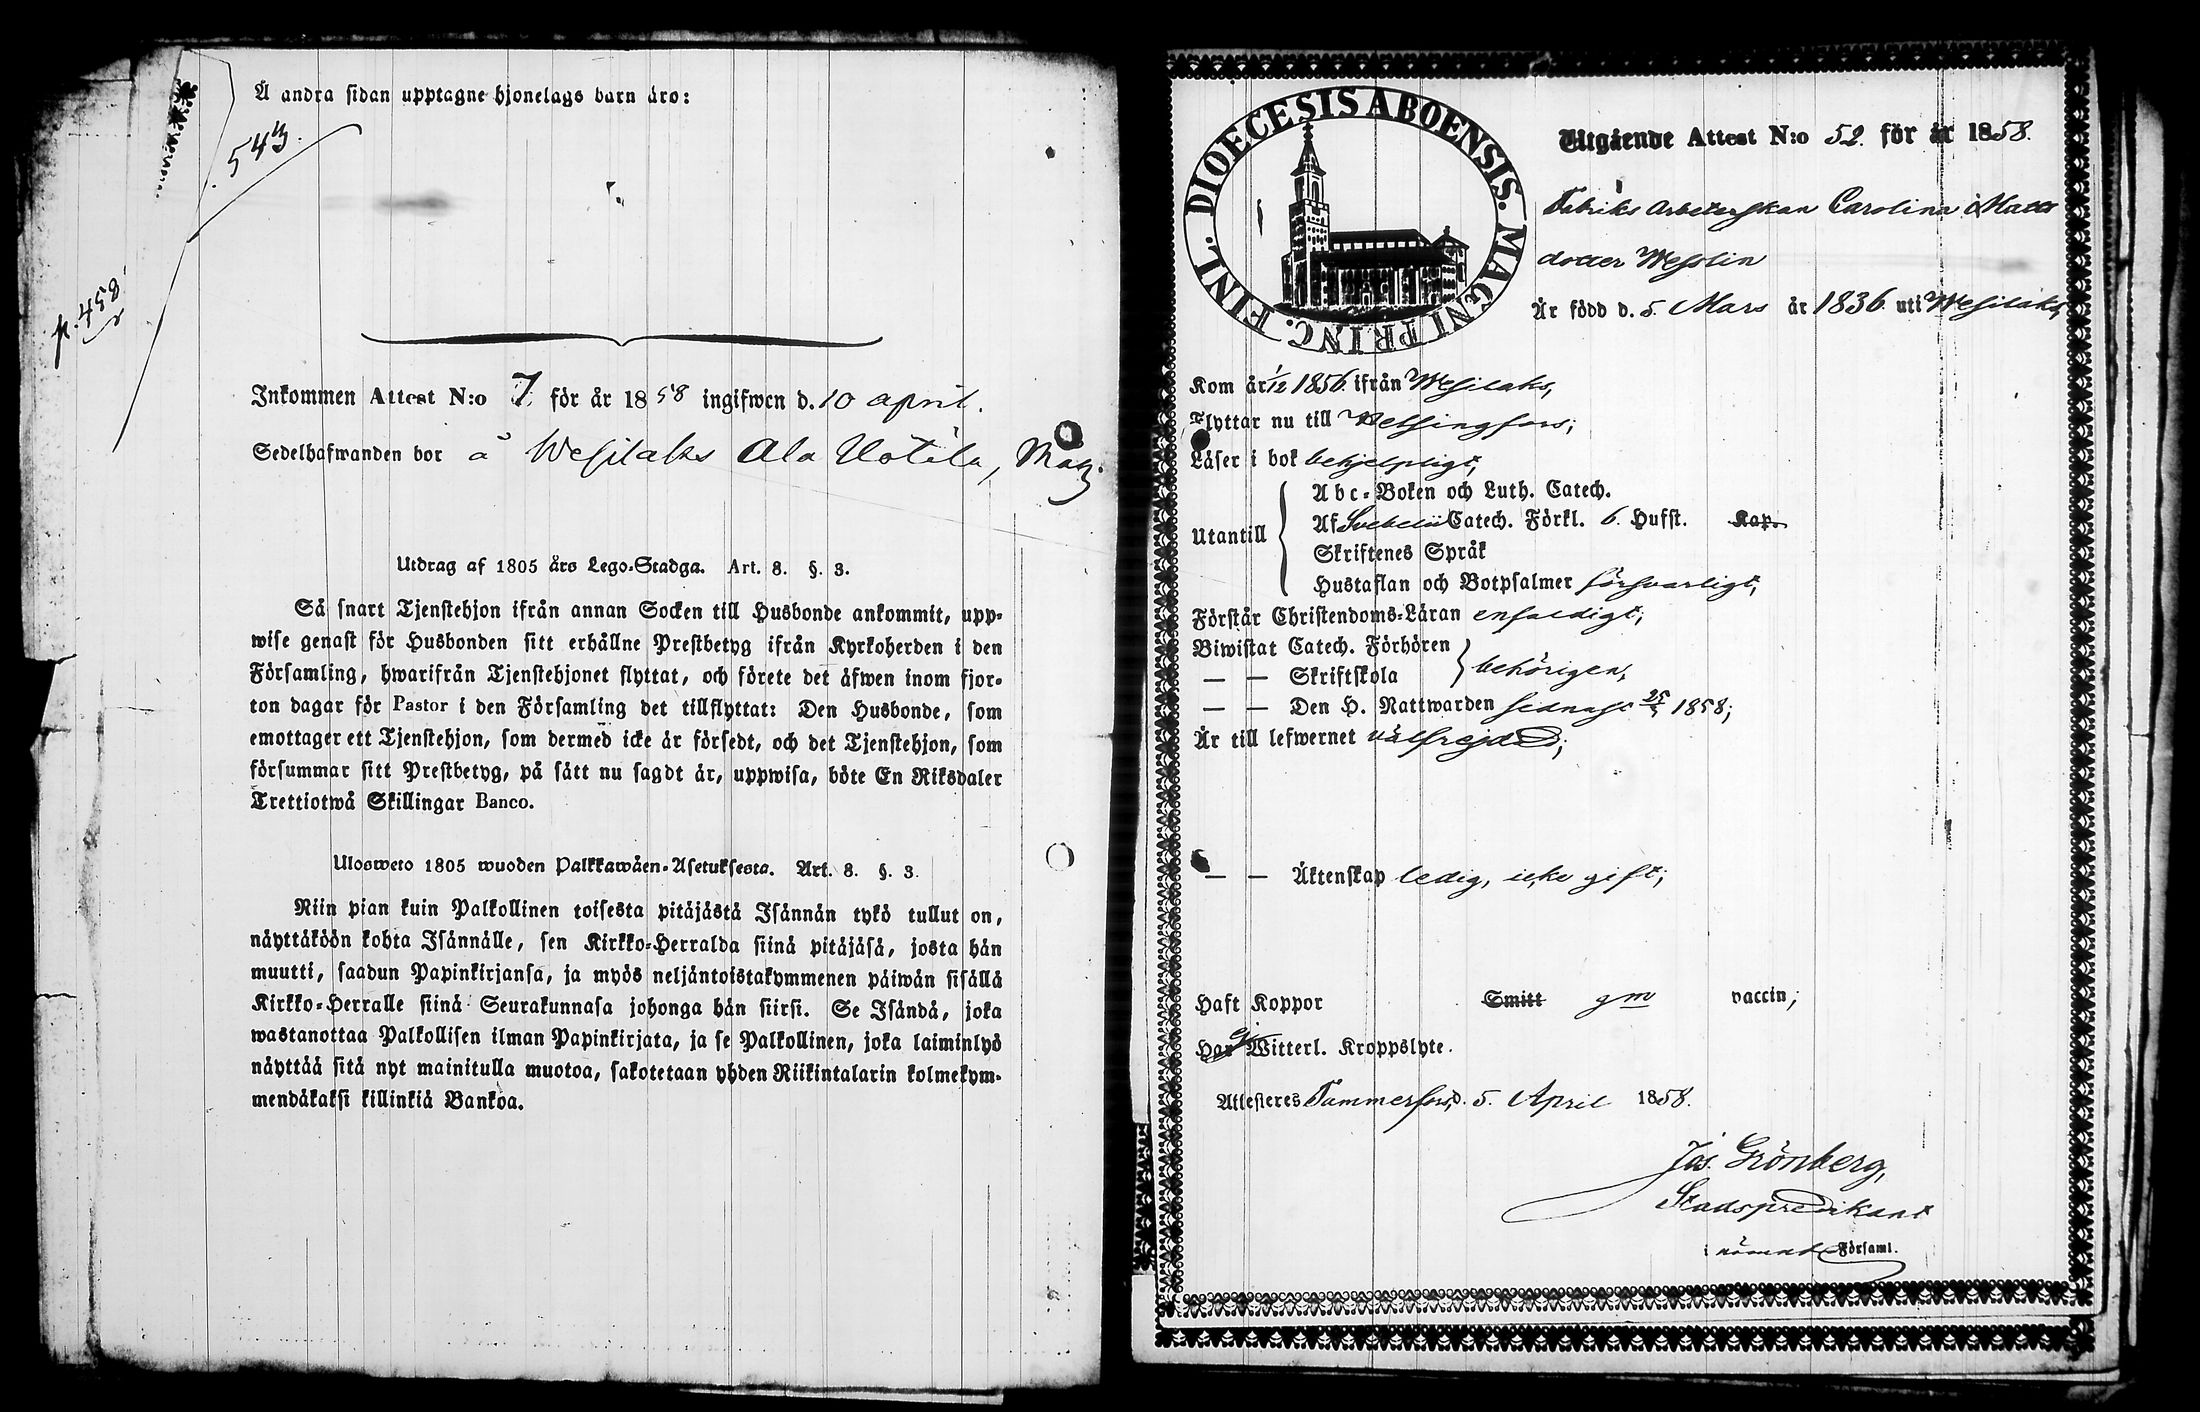 Å andra sidan upptagne hjonelags barn äro:
543.
p. 458
Inkommen Attest N:o 7 för år 1858 ingifwen d. 10 april.
Sedelhafwanden bor å Wesilaks Ala Uotila,
Utdrag af 1805 års Lego-Stadga. Art. 8. §. 3.
Så snart Tjenstehjon ifrån annan Socken till Husbonde ankommit, upp-
wise genast för Husbonden sitt erhållne Prestbetyg ifrån Kyrkoherden i den
Församling, hwarifrån Tjenstehjonet flyttat, och förete det äfwen inom fjor-
ton dagar för Pastor i den Församling det tillflyttat: Den Husbonde, som
emottager ett Tjenstehjon, som dermed icke är försedt, och det Tjenstehjon, som
försummar sitt Prestbetyg, på sätt nu sagdt är, uppwisa, böte En Riksdaler
Trettiotwå Skillingar Banco.
Ulosweto 1805 wuoden Palkkawäen-Asetuksesta. Art. 8. §. 3.
Niin pian kuin Palkollinen toisesta pitäjästä Isännän tykö tullut on,
näyttäköön kohta Isännälle, sen Kirkko-Herralda siinä pitäjäsä, josta hän
muutti, saadun Papinkirjansa, ja myös neljäntoistakymmenen päiwän sisällä
Kirkko-Herralle siinä Seurakunnasa johonga hän siirsi. Se Isändä, joka
wastanottaa Palkollisen ilman Papinkirjata, ja se Palkollinen, joka laiminlyö
näyttää sitä nyt mainitulla muotoa, sakotetaan yhden Riikintalarin kolmekym-
mendäkaksi killinkiä Bankoa.
DIOECESIS ABOENSIS. MAGNI PRINC. FINL.
Utgående Attest N:o 52. för år 1858.
Fabriks Arbeterskan Carolina Matts
dotter Wesslin
Är född d. 5. Mars år 1836. uti Wesilaks,
Kom år 1/12 1856. ifrån Wesilaks,
Flyttar nu till Helsingfors;
Läser i bok behjelpligt,
Utantill
Abc-Boken och Luth. Catech.
Af Svebelii Catech. Förkl. 6. Hufst. Kap.
Skriftenes Språk
Hustaflan och Botpsalmer försvarligt,
Förstår Christendoms-Läran enfaldigt,
Biwistat Catech. Förhören
— — Skriftskola behörigen,
— — Den H. Nattwarden sednast 1858;
Är till lefwernet välfrejdad;
— — Äktenskap ledig, icke gift;
Haft Koppor Smitt gm vaccin;
Har ej Witterl. Kroppslyte.
Attesteres Tammerfors, d. 5. April 1858.
Jos. Grönberg,
Stadspredikant
i nämnd Församl.